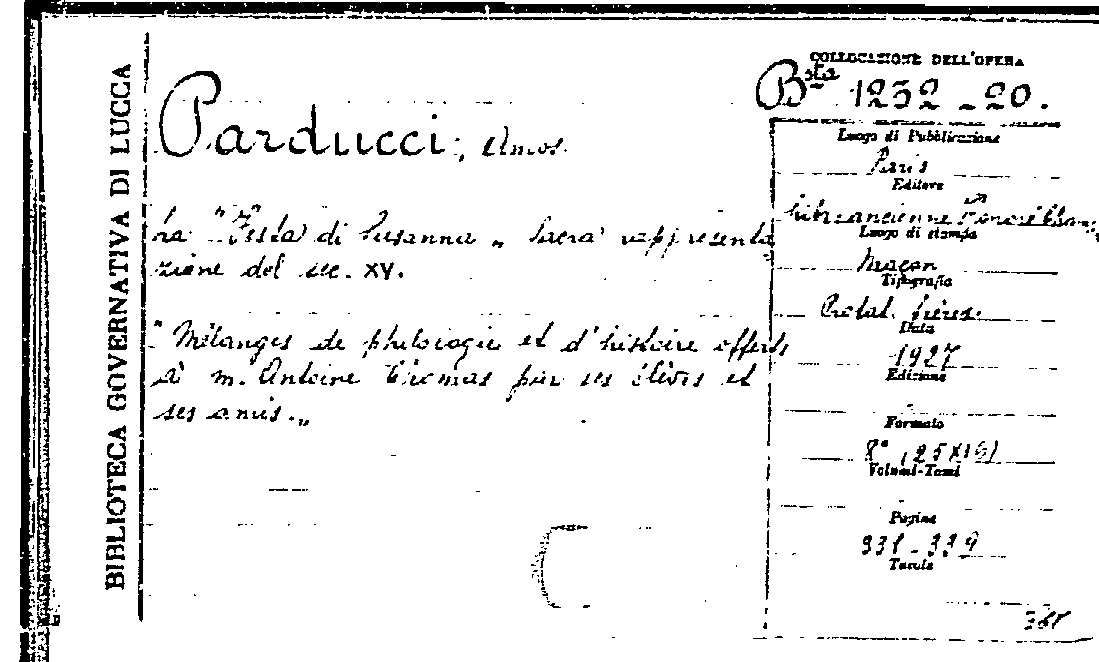 BIBLIOTECA GOVERNATIVA DI LUCCA
Parducci, Amos.
La "Festa di Susanna„ Sacra rappresenta
zione del sec. XV.
"Mélanges de philologie et d'histoire offerts
à M. Antoine Thomas par ses élèves et
ses amis.„
COLLOCAZIONE DELL'OPERA
Bsta 1232-20.
Luogo di Pubblicazione
Paris
Editore
Libr. ancienne
Luogo di stampa
Macon
Tipografia
Protat frères.
Data
1927
Edizione
Formato
8° (25X16)
Volumi-Tomi
Pagine
331-339
Tavole